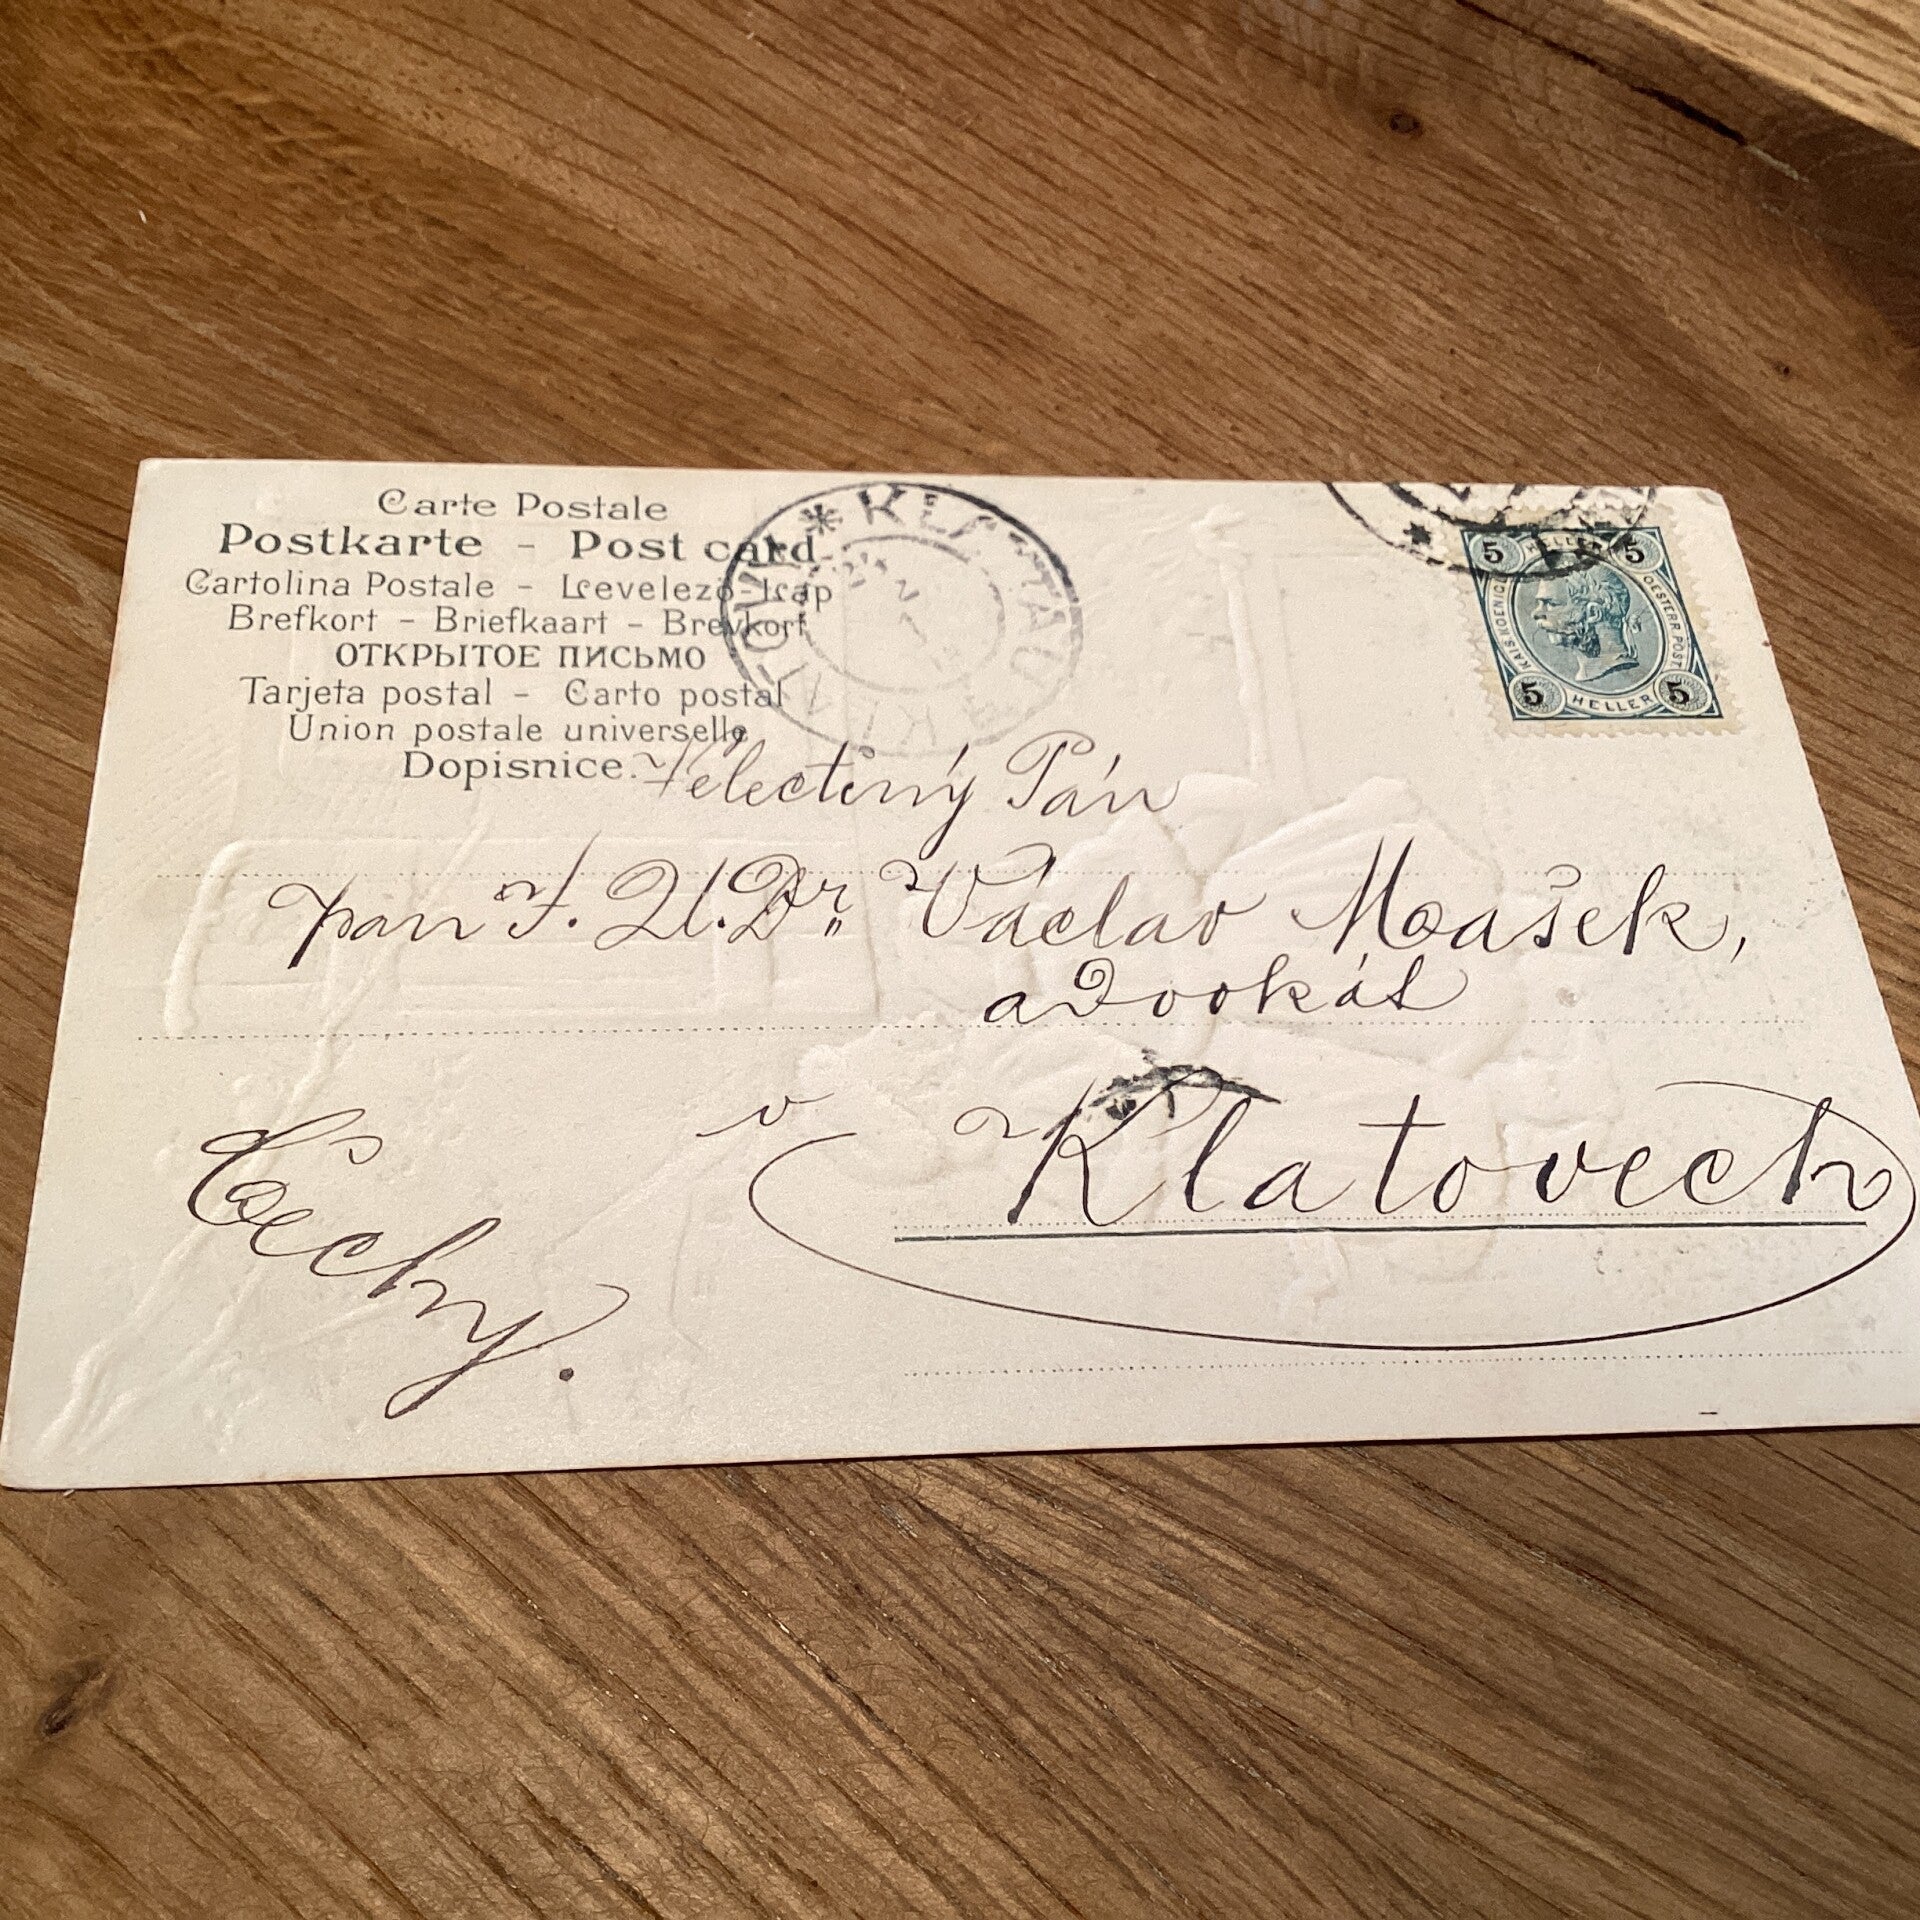 Carte Postale
Postkarte - Post card
Cartolina Postale - Levelező-Lap
Brefkort - Briefkaart - Brevkort
ОТКРЫТОЕ ПИСЬМО
Tarjeta postal - Carto postal
Union postale universelle
Dopisnice.
KLATTAU
KLATOVY
5 HELLER 5
KAIS KOENIGL OESTERR POST
5 HELLER 5
Velectěný Pán
pan J. U. Dr. Václav Mašek,
advokát
v Klatovech
Čechy.